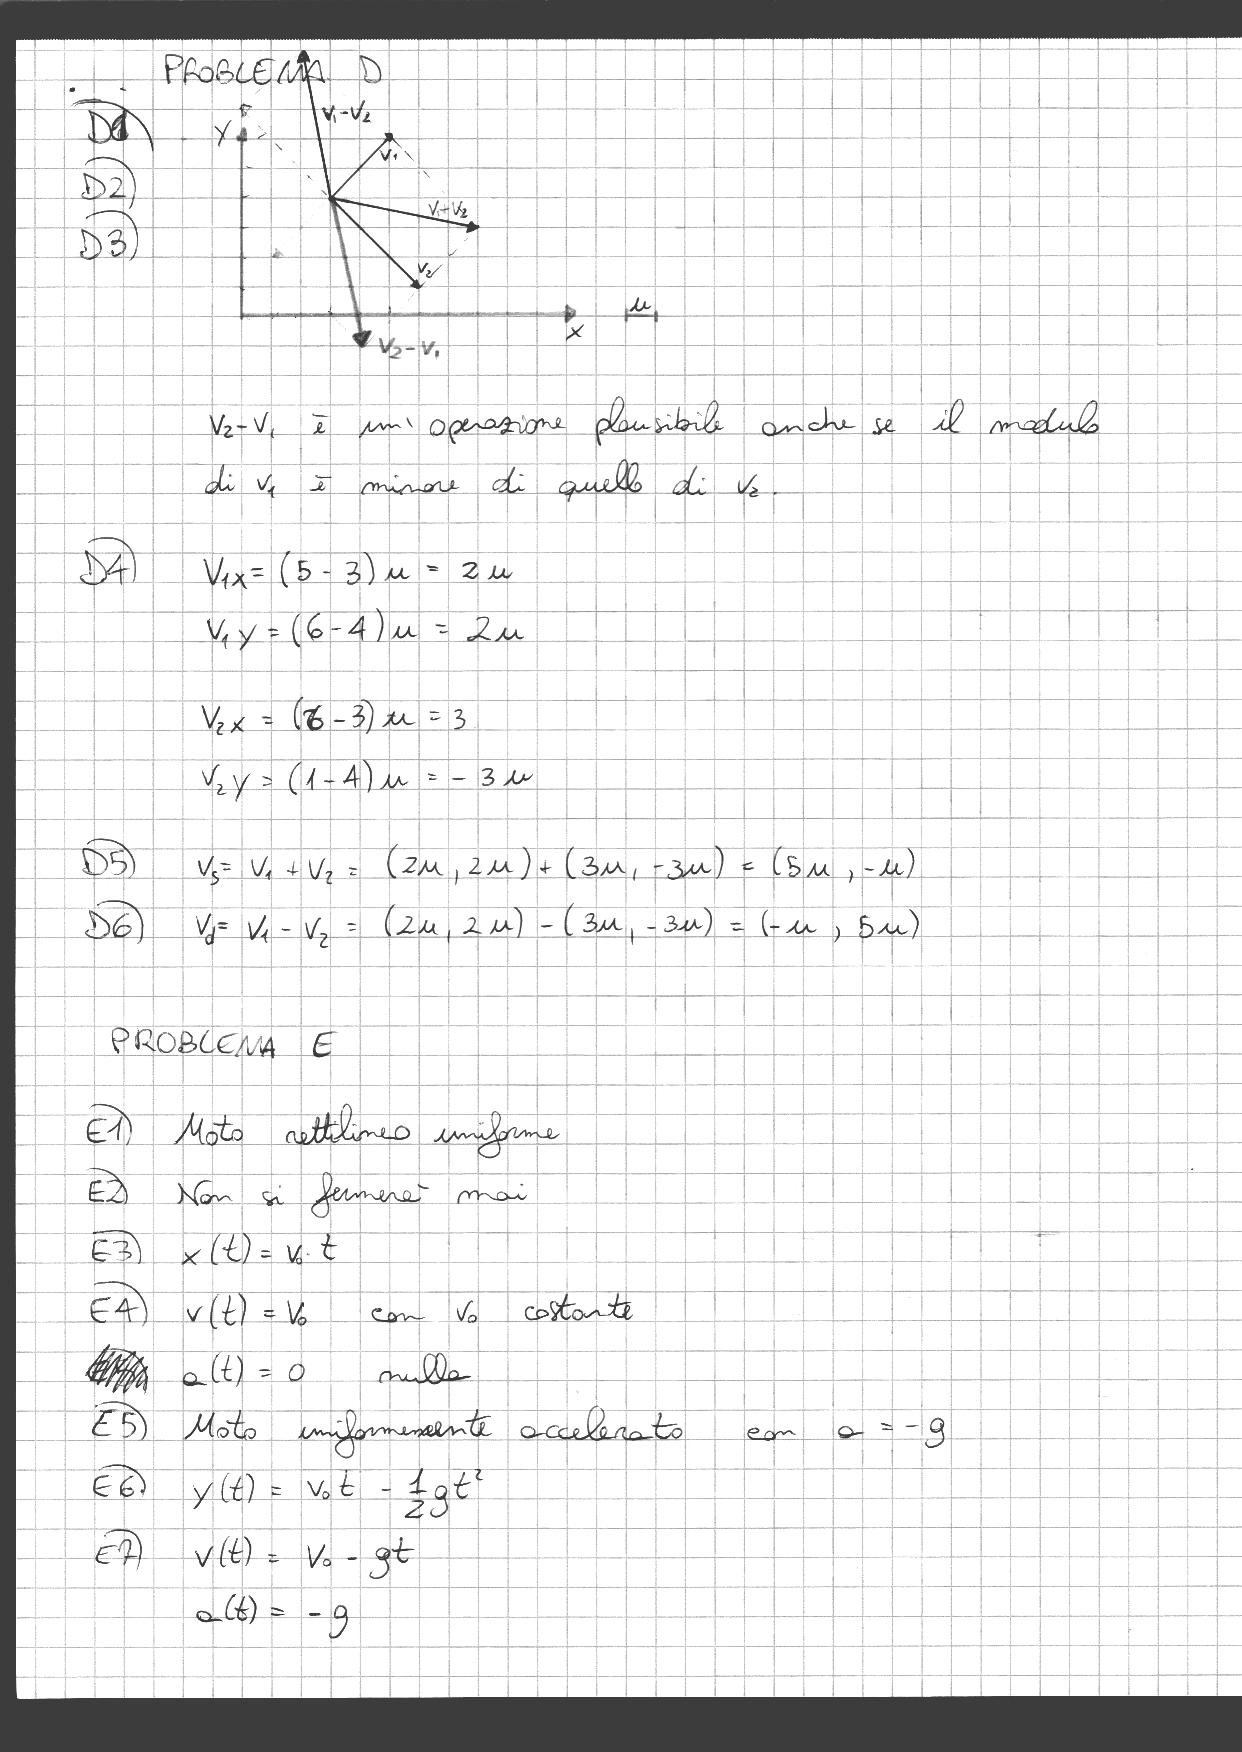 PROBLEMA D
D1)
D2)
D3)
Y
V₁-V₂
V₁
V₁+V₂
V₂
V₂-V₁
X
u
V₂-V₁ è un' operazione plausibile anche se il modulo
di V₁ è minore di quello di V₂.
D4) V₁x = (5-3)u = 2u
V₁y = (6-4)u = 2u
V₂x = (6-3)u = 3
V₂y = (1-4)u = -3u
D5) Vs = V₁ + V₂ = (2u, 2u) + (3u, -3u) = (5u, -u)
D6) Vd = V₁ - V₂ = (2u, 2u) - (3u, -3u) = (-u, 5u)
PROBLEMA E
E1) Moto rettilineo uniforme
E2) Non si fermerà mai
E3) x(t) = v₀·t
E4) v(t) = v₀ con v₀ costante
a(t) = 0 nulla
E5) Moto uniformemente accelerato con a = -g
E6) y(t) = v₀t - 1/2 gt²
E7) v(t) = v₀ - gt
a(t) = -g